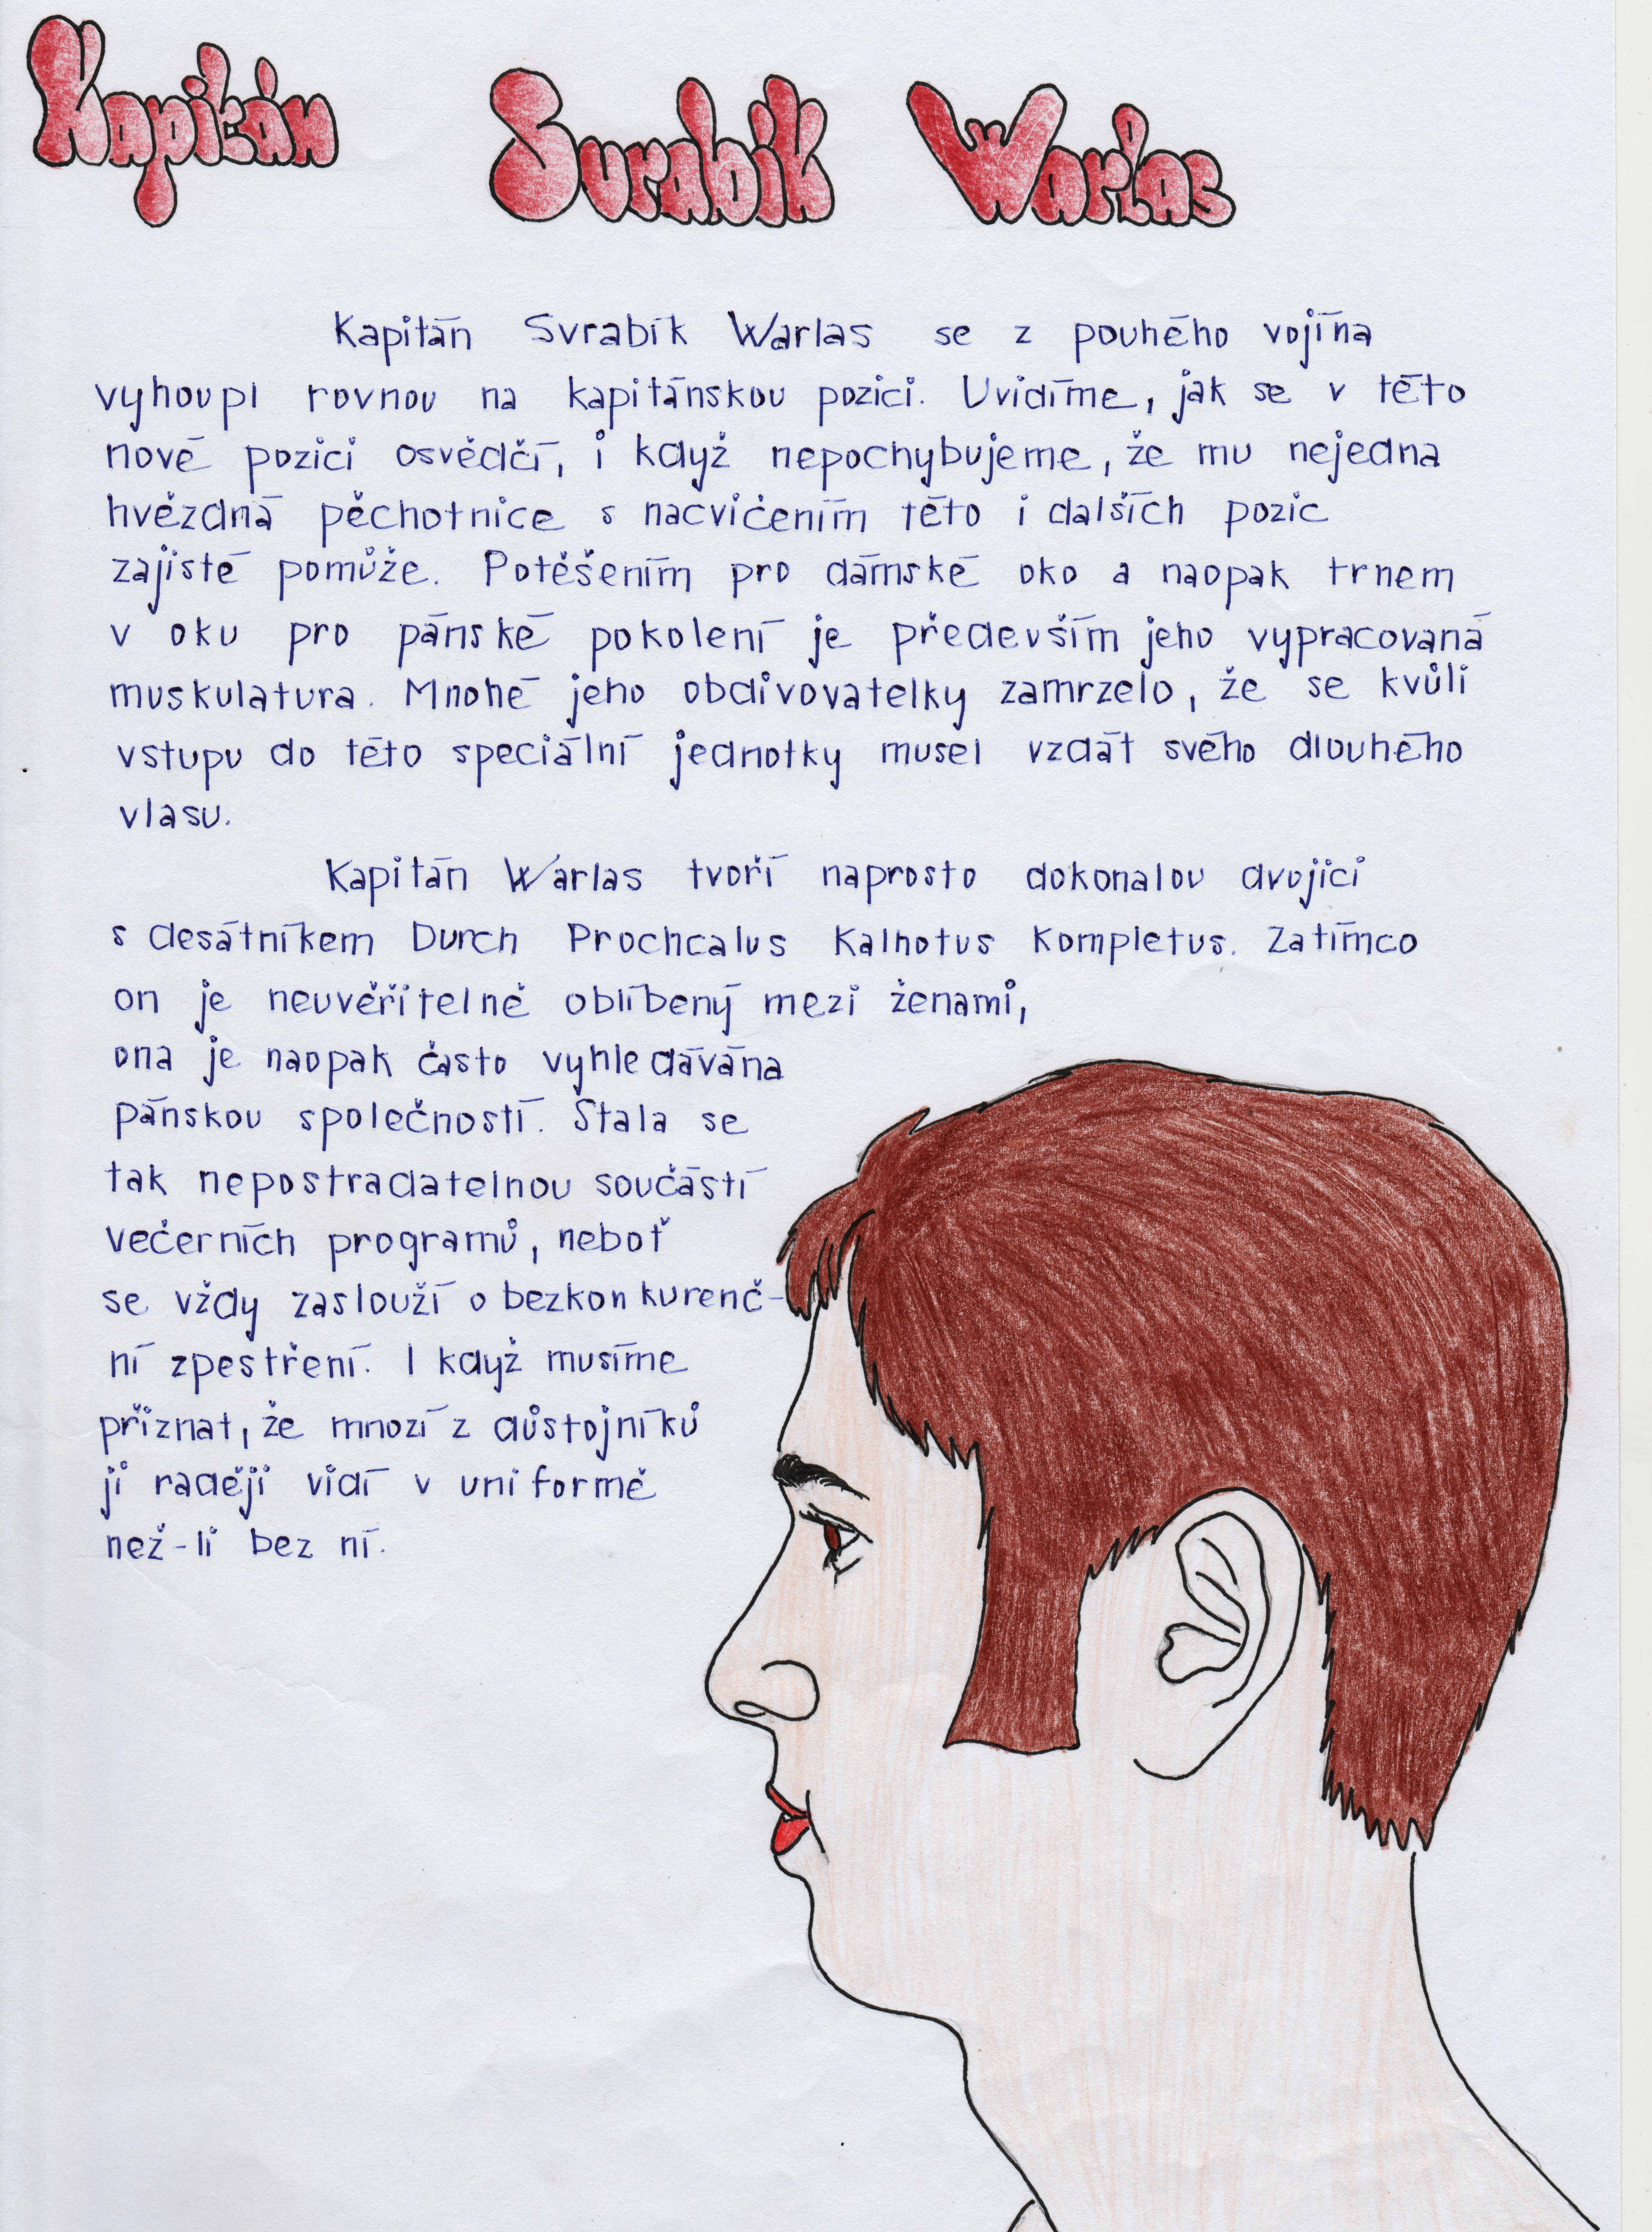 Kapitán Svrabík Warlas
Kapitán Svrabík Warlas se z pouhého vojína
vyhoupl rovnou na kapitánskou pozici. Uvidíme, jak se v této
nové pozici osvědčí, i když nepochybujeme, že mu nejedna
hvězdná pěchotnice s nacvičením této i dalších pozic
zajisté pomůže. Potěšením pro dámské oko a naopak trnem
v oku pro pánské pokolení je především jeho vypracovaná
muskulatura. Mnohé jeho obdivovatelky zamrzelo, že se kvůli
vstupu do této speciální jednotky musel vzdát svého dlouhého
vlasu.
Kapitán Warlas tvoří naprosto dokonalou dvojici
s desátníkem Durch Prochcalus Kalhotus Kompletus. Zatímco
on je neuvěřitelně oblíbený mezi ženami,
ona je naopak často vyhledávána
pánskou společností. Stala se
tak nepostradatelnou součástí
večerních programů, neboť
se vždy zaslouží o bezkonkurenč-
ní zpestření. I když musíme
přiznat, že mnozí z důstojníků
ji raději vidí v uniformě
než-li bez ní.